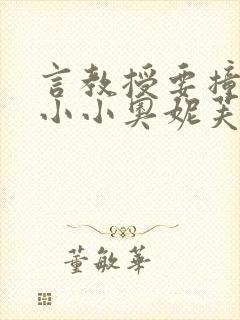 言教授要撞
小小奥妮芙
董敏華